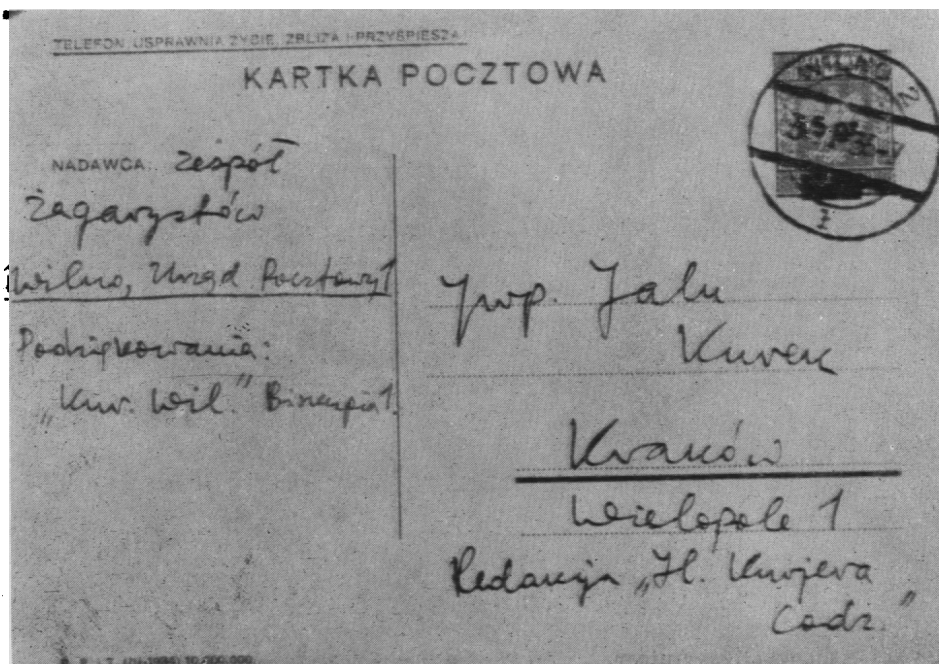 TELEFON USPRAWNIA ŻYCIE, ZBLIŻA I PRZYŚPIESZA
KARTKA POCZTOWA
NADAWCA: Zespół
Żagarystów
Wilno, Urząd Pocztowy 1
Podziękowania:
„Kur. Wil." Biskupia 1.
Jwp. Jalu
Kurek
Kraków
Wielopole 1
Redakcja „Il. Kurjera
Codz."